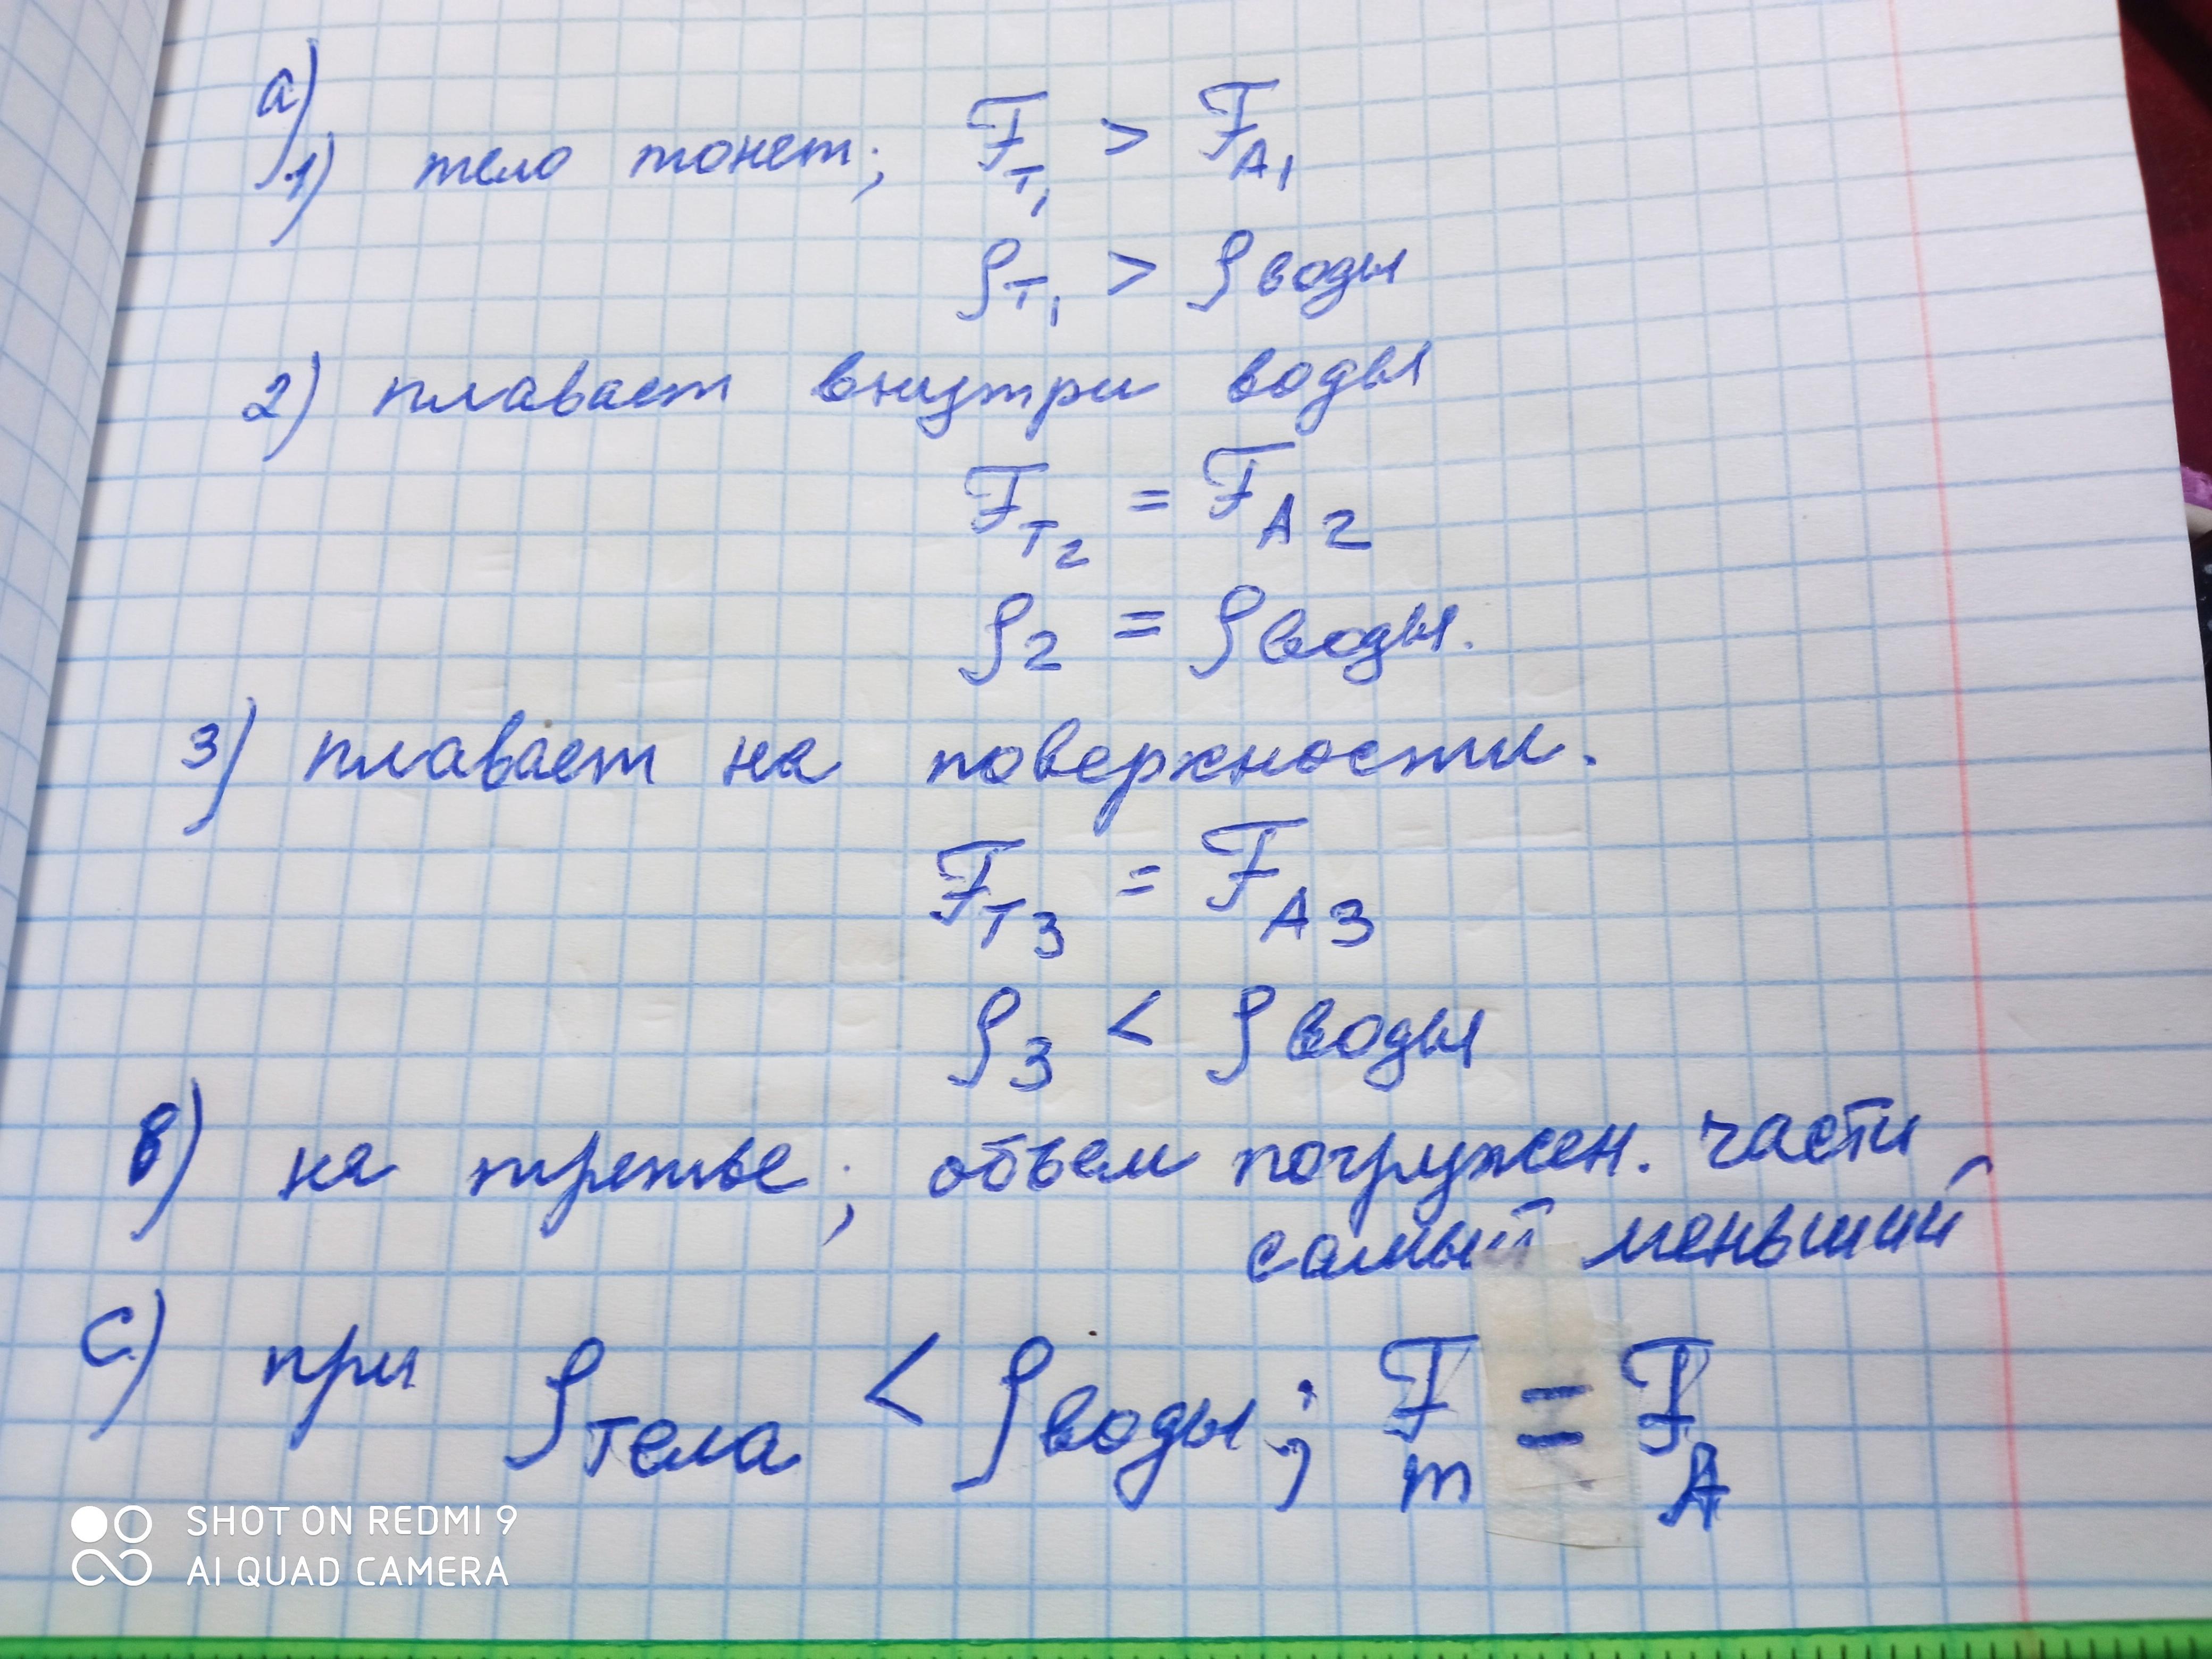 а)
1) тело тонет; F_T₁ > F_A₁
ρ_T₁ > ρ воды
2) плавает внутри воды
F_T₂ = F_A₂
ρ₂ = ρ воды.
3) плавает на поверхности.
F_T₃ = F_A₃
ρ₃ < ρ воды
в) на третье; объем погружен. части
самый меньший
с) при ρ тела < ρ воды; F_т = F_A
SHOT ON REDMI 9
AI QUAD CAMERA